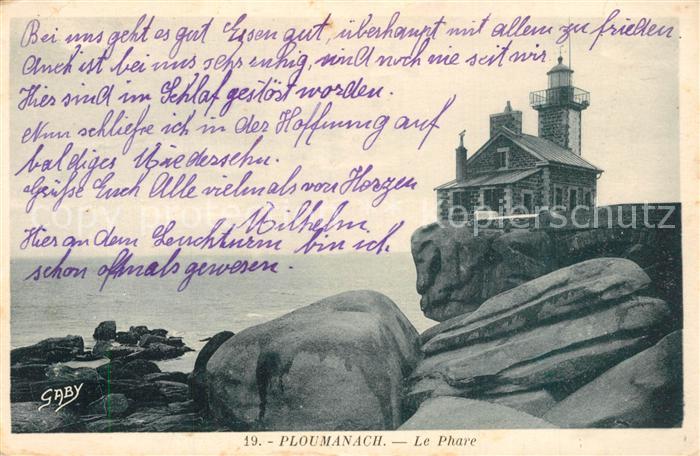 Bei uns geht es gut Essen gut, überhaupt mit allem zu frieden
Auch ist bei uns sehr ruhig, und noch nie seit wir
Hier sind im Schlaf gestöst worden.
Nun schließe ich in der Hoffnung auf
baldiges Wiedersehn.
Grüße Euch Alle vielmals von Herzen
Wilhelm.
Hier an dem Leuchtturm bin ich
schon oftmals gewesen.
copyright protected - Ansichtskartenschutz
GABY
19. - PLOUMANACH. — Le Phare